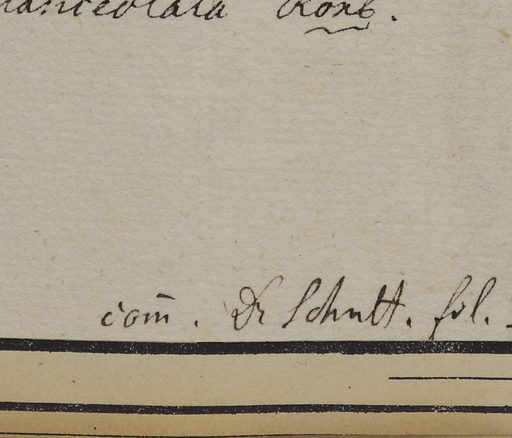 lanceolata Roxb.
com̄. Dr Schult. fil.